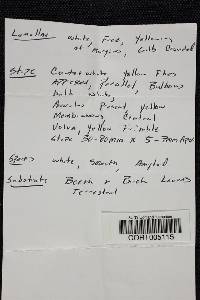 Lamellae white, Free, Yellowing
at Margins, Gills Crowded
Stipe Center white yellow
Appressed, Bulbous
both white
Annulus Present, yellow
Membranous, Central
Volva, Yellow Friable
Stipe 50-80mm x 5-7mm
Spores white, Smooth, Amyloid
Substrate Beech & Birch Leaves
Terrestrial